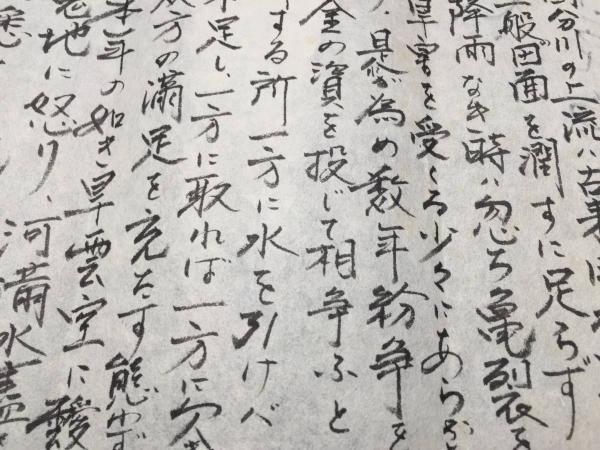 分川の上流ハ古来
一般田面を潤すに足らず
降雨なき時ハ忽ち亀裂を
旱害を受くる少々にあらざ
是が為め数年紛争を
金の資を投じて相争ふと
する所一方に水を引けバ
不足し、一方に取れば一方に欠
双方の満足を充たす能わず
年の如き旱雲空に
地に怒り、河